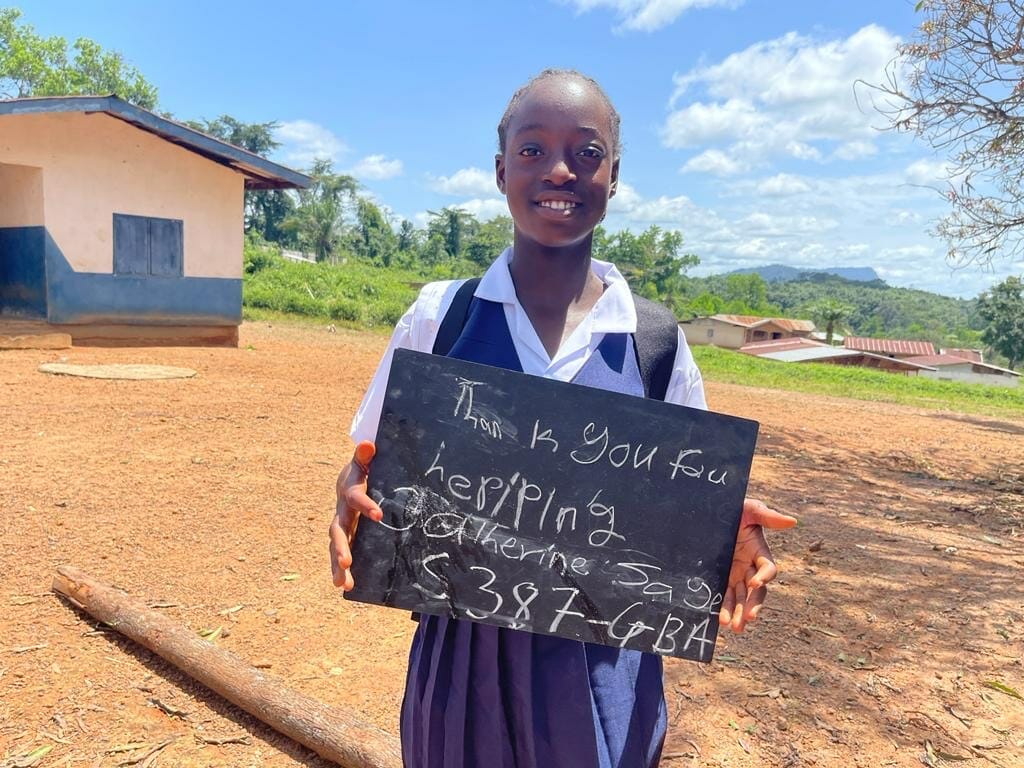 Thank You Fou
heriping
Catherine Sage
S 387-GBA